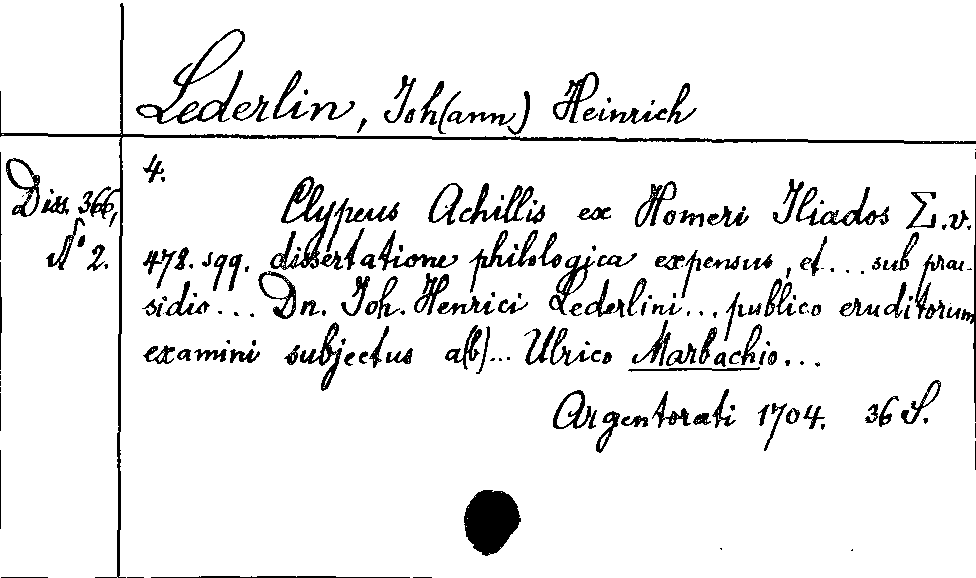 Lederlin, Joh(ann) Heinrich
Diss. 366,
N° 2.
4.
Clypeus Achillis ex Homeri Iliados Σ.v.
478. sqq. dissertatione philologica expensus, et... sub prae-
sidio... Dn. Joh. Henrici Lederlini... publico eruditorum
examini subjectus a(b)... Ulrico Marbachio...
Argentorati 1704. 36 S.